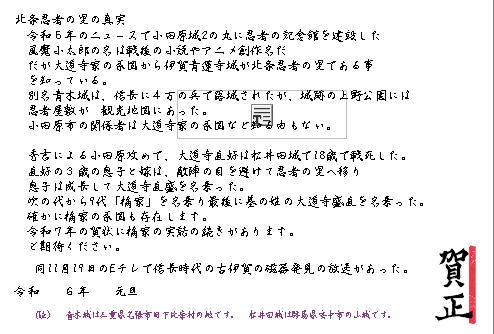 北条忍者の里の真実
令和5年のニュースで小田原城2の丸に忍者の記念館を建設した
風魔小太郎の名は戦後の小説やアニメ創作名だ
だが大道寺家の系図から伊賀青蓮寺城が北条忍者の里である事
を知っている。
別名青木城は、信長に4万の兵で落城されたが、城跡の上野公園には
忍者屋敷が 観光地図にあった。
小田原市の関係者は大道寺家の系図など知る由もない。
秀吉による小田原攻めで、大道寺直好は松井田城で18歳で戦死した。
直好の3歳の息子と嫁は、敵陣の目を避けて忍者の里へ移り
息子は成長して大道寺直盛を名乗った。
次の代から9代「橘家」を名乗り最後に養の姓の大道寺盛直を名乗った。
確かに橘家の系図も存在します。
令和7年の賀状に橘家の実話の続きがあります。
ご期待ください。
同11月19日のEテレで信長時代の古伊賀の磁器発見の放送があった。
令和 6年 元旦
(註) 青木城は三重県名張市日下比奈村の地です。 松井田城は群馬県安中市の山城です。
賀正